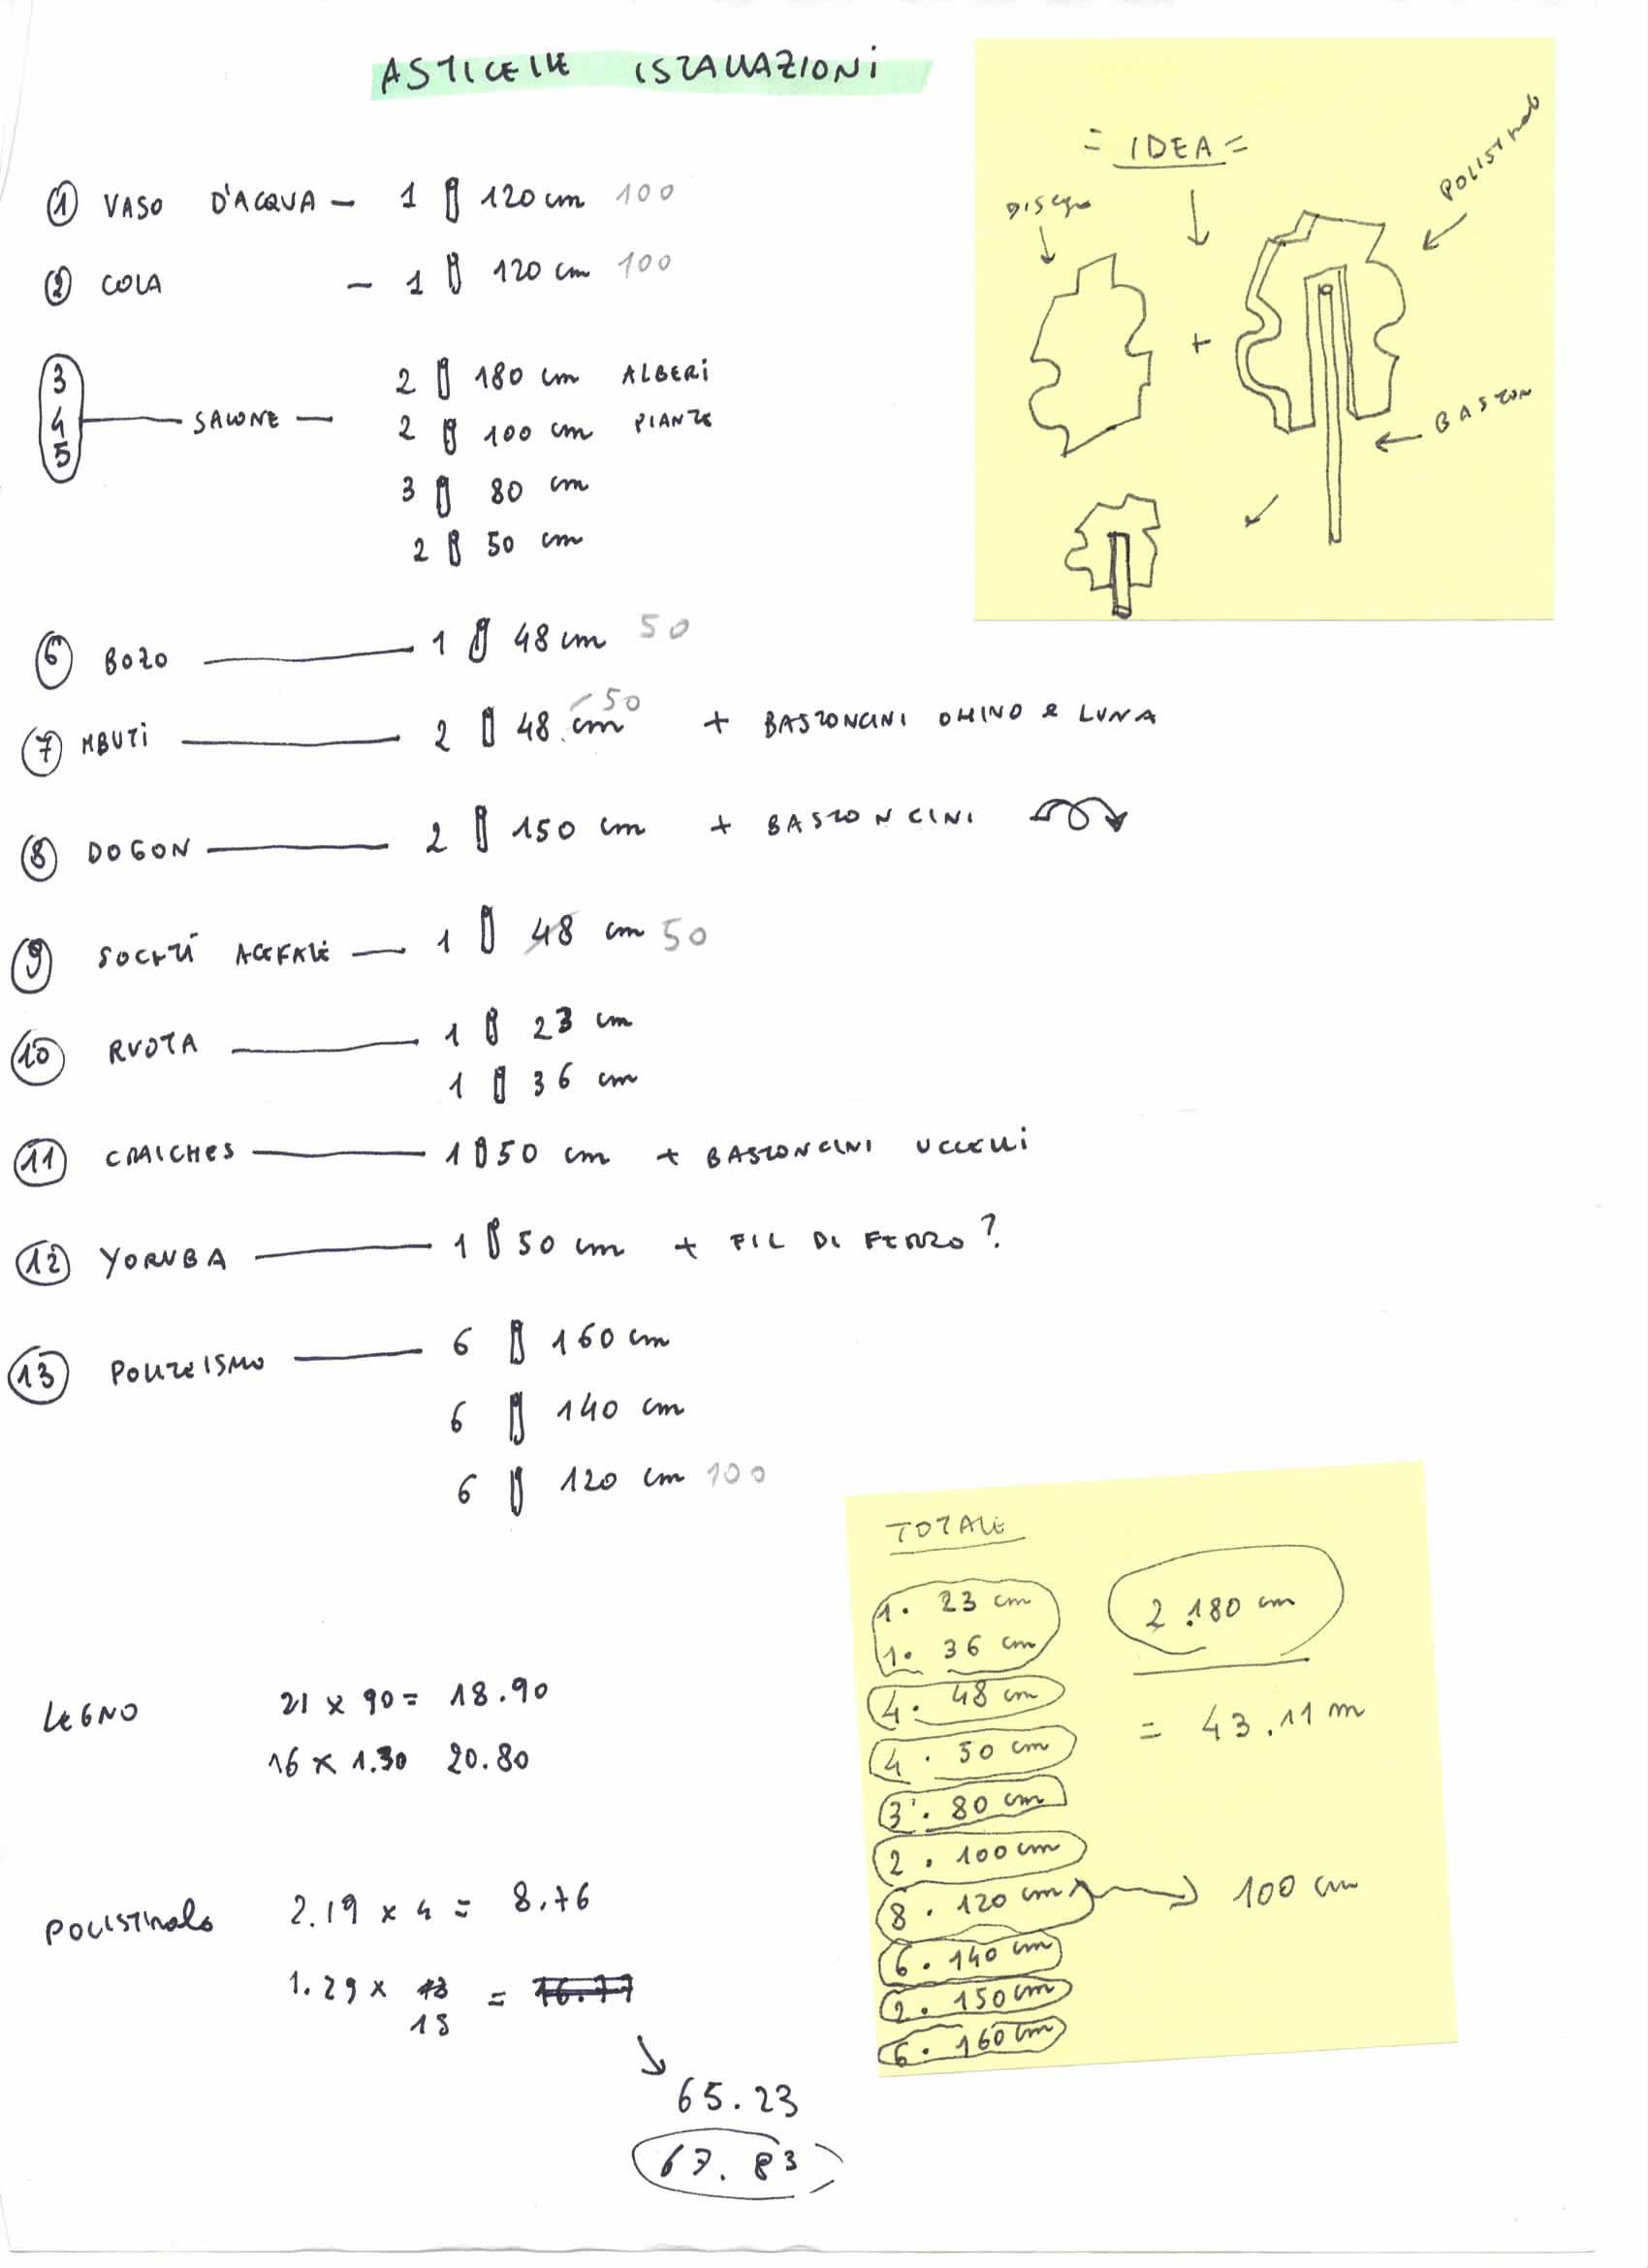 ASTICELLE ISTALLAZIONI
① VASO D'ACQUA – 1 120 cm 100
② COLA – 1 120 cm 100
3 4 5 — SALONE — 2 180 cm ALBERI
2 100 cm PIANTE
3 80 cm
2 50 cm
⑥ BOZO — 1 48 cm 50
⑦ MBUTI — 2 48 cm 50 + BASTONCINI OMINO e LUNA
⑧ DOGON — 2 150 cm + BASTONCINI
⑨ SOCIETÀ ACEFALE — 1 48 cm 50
⑩ RUOTA — 1 23 cm
1 36 cm
⑪ — 1 50 cm + BASTONCINI UCCELLI
⑫ YORUBA — 1 50 cm + FIL DI FERRO?
⑬ POLITEISMO — 6 160 cm
6 140 cm
6 120 cm 100
LEGNO 21 x 90 = 18.90
16 x 1.30 20.80
POLISTIROLO 2.19 x 4 = 8.76
1.29 x 13 = 16.77
15
65.23
67.83
= IDEA =
DISEGNO
POLISTIROLO
+
BASTON
TOTALE
1 . 23 cm
1 . 36 cm
4 . 48 cm
4 . 50 cm
3 . 80 cm
2 . 100 cm
8 . 120 cm → 100 cm
6 . 140 cm
2 . 150 cm
6 . 160 cm
2 . 180 cm
= 43.11 m